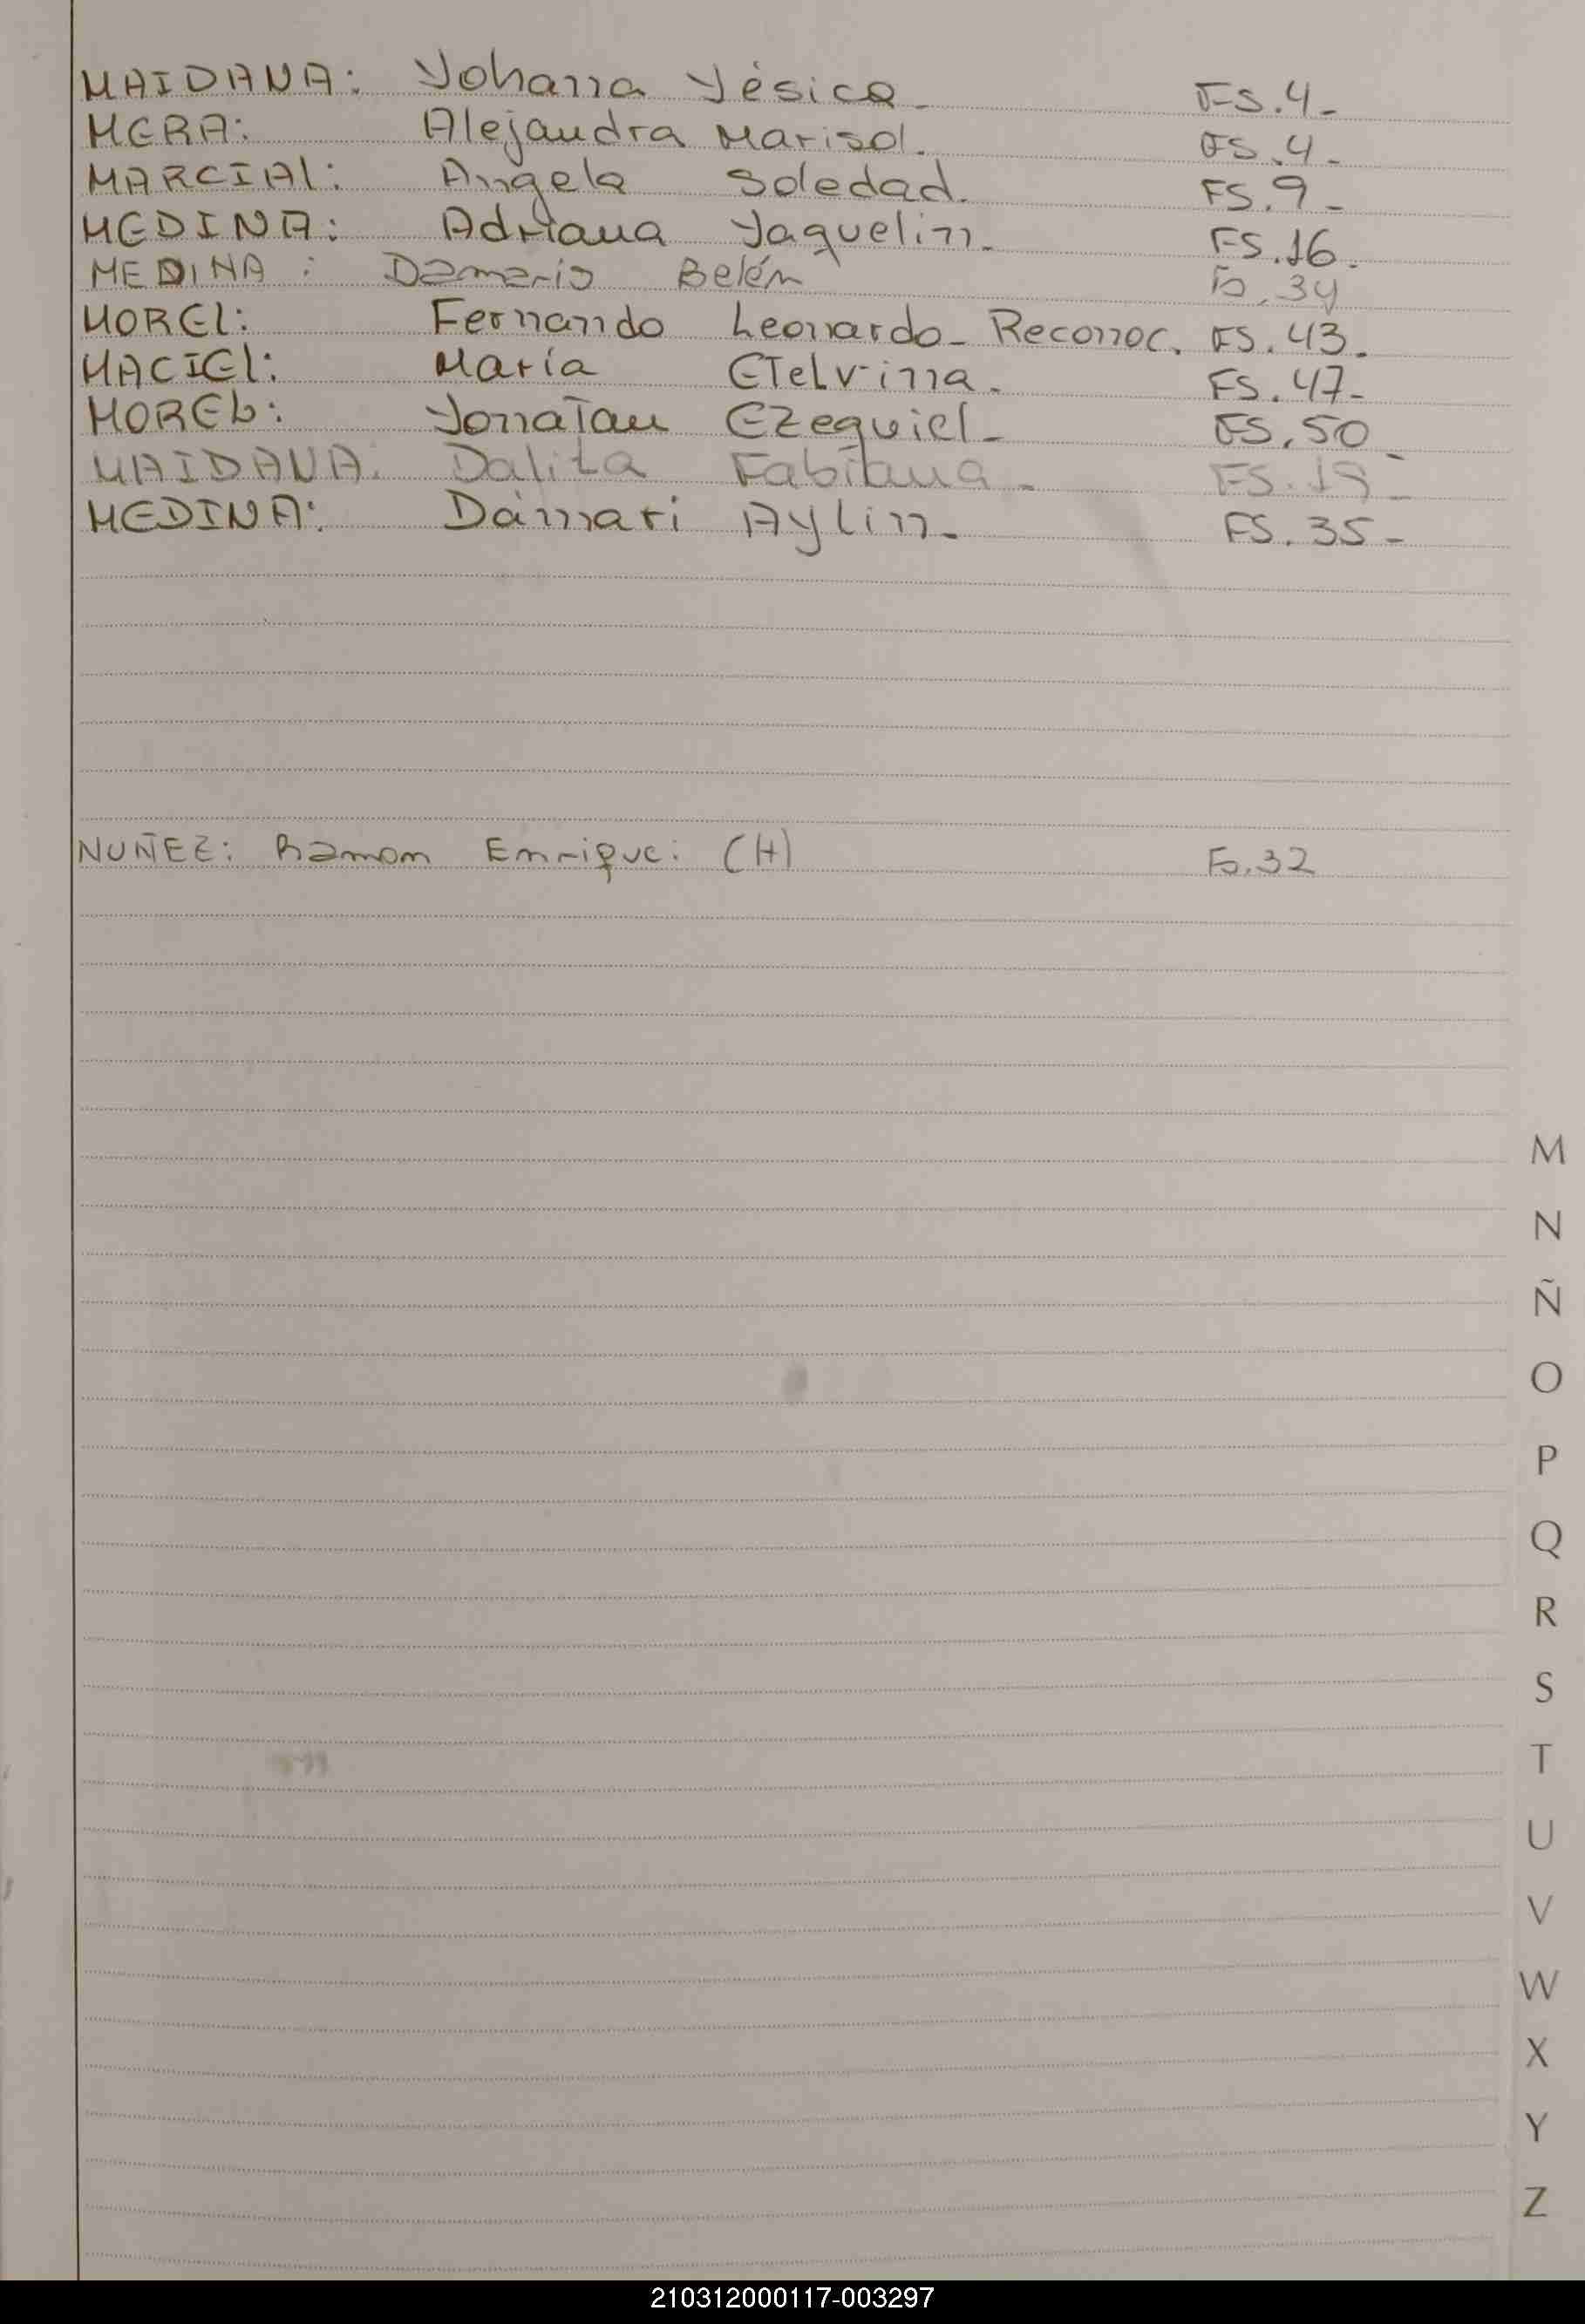 MAIDANA: Yohana Yésica - FS.4-
MERA: Alejandra Marisol. FS.4-
MARCIAl: Angela Soledad. FS.9-
MEDINA: Adriana Yaquelin- FS.16.
MEDINA: Damaris Belén Fs.34
MOREl: Fernando Leonardo- Reconoc. FS.43.
MACIEl: María ETelvina. FS.47-
MOREL: YonaTan EZequiel- FS.50-
MAIDANA: Dalila Fabiana- FS.19-
MEDINA: Dámari Aylin- FS.35-
NUÑEZ: Ramon Enrique: (H) Fs.32
M
N
Ñ
O
P
Q
R
S
T
U
V
W
X
Y
Z
210312000117-003297